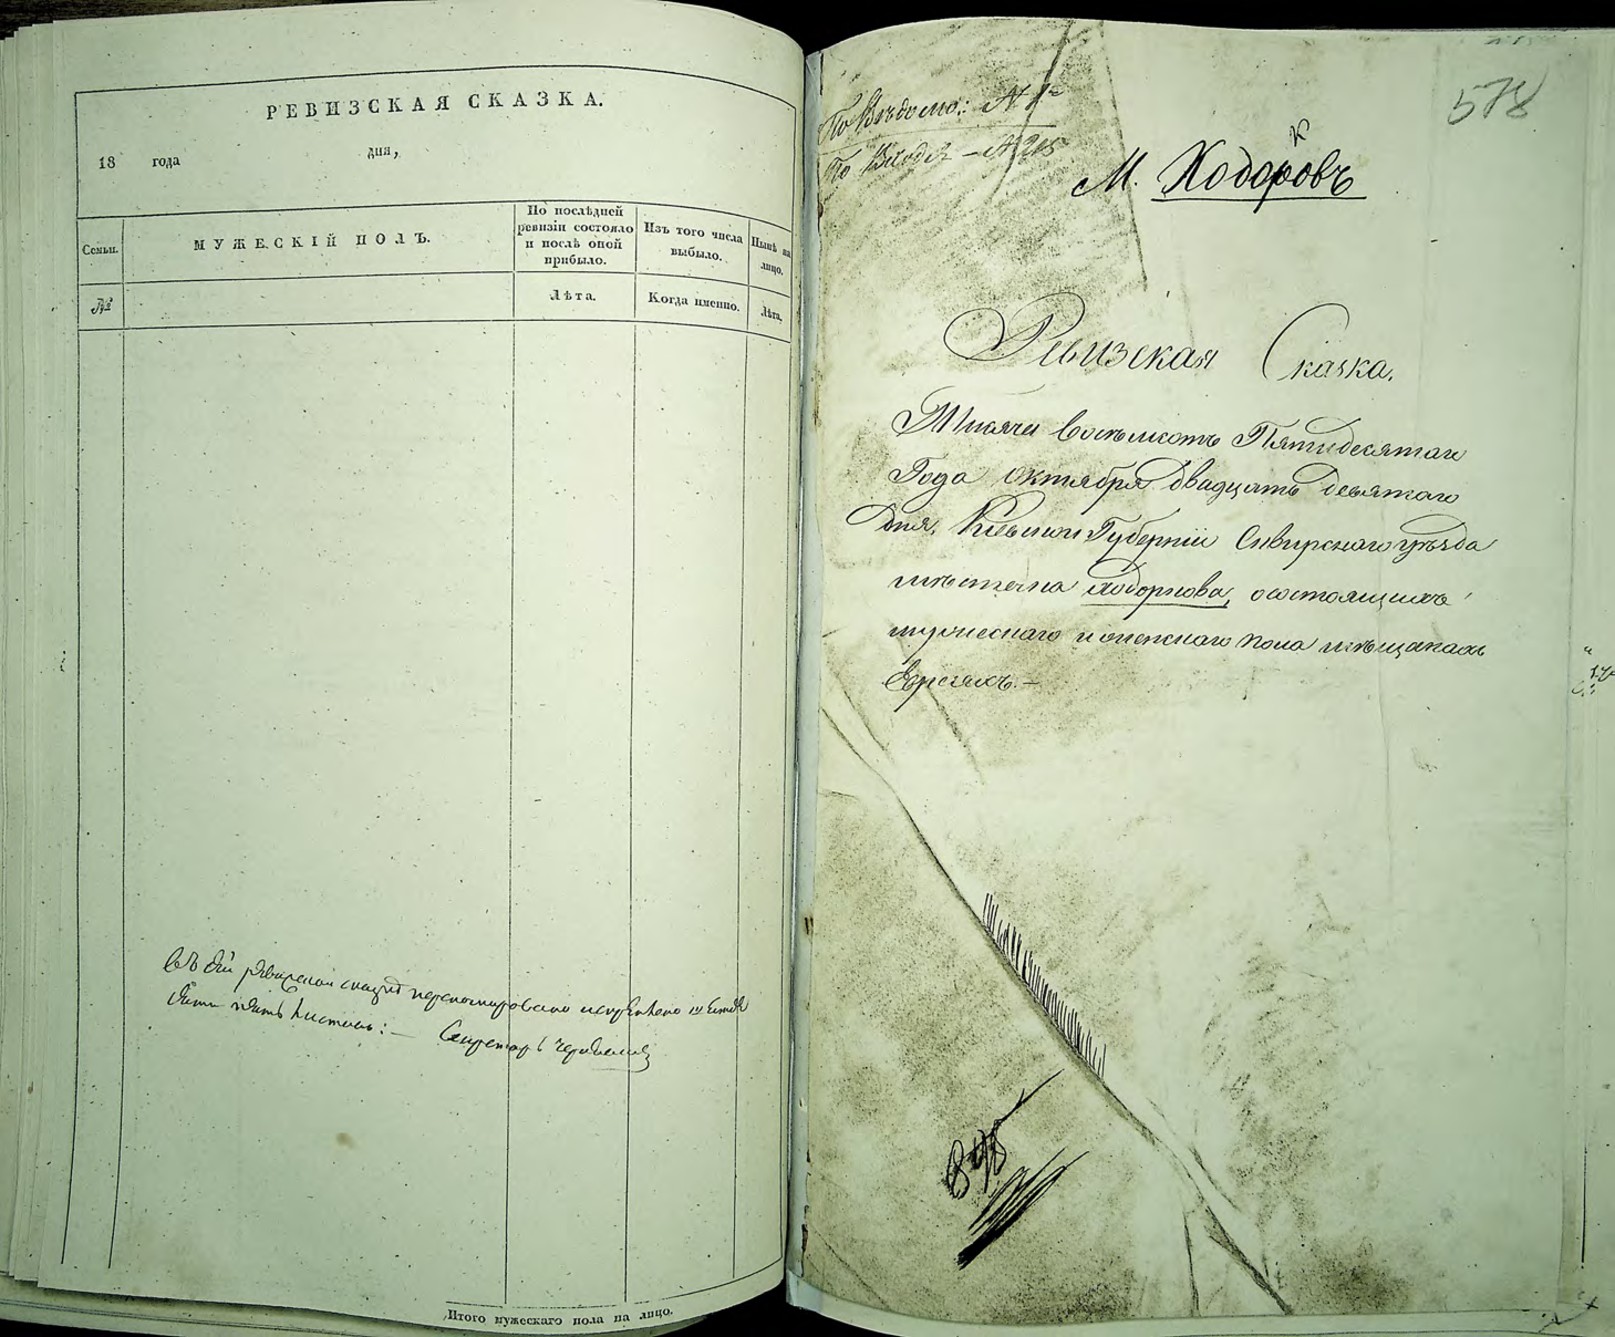 РЕВИЗСКАЯ СКАЗКА.
18 года дня,
Семьи.
МУЖЕСКІЙ ПОЛЪ.
По послѣдней
ревизіи состояло
и послѣ оной
прибыло.
Изъ того числа
выбыло.
Нынѣ на
лицо.
№
Лѣта.
Когда именно.
Лѣта.
въ сей ревизской сказкѣ перенумеровано
пять листовъ: — Секретарь
Итого мужескаго пола на лицо.
578
По Вѣдомо: № 1
По Входя — № 215
к
М. Ходоровъ
Ревизская Сказка.
Тысяча восемьсотъ Пятидесятаго
Года октября двадцать девятаго
дня, Кіевской Губерніи Сквирскаго уѣзда
мѣстечка Ходоркова, о состоящихъ
мужескаго и женскаго пола мѣщанахъ
Евреяхъ. —